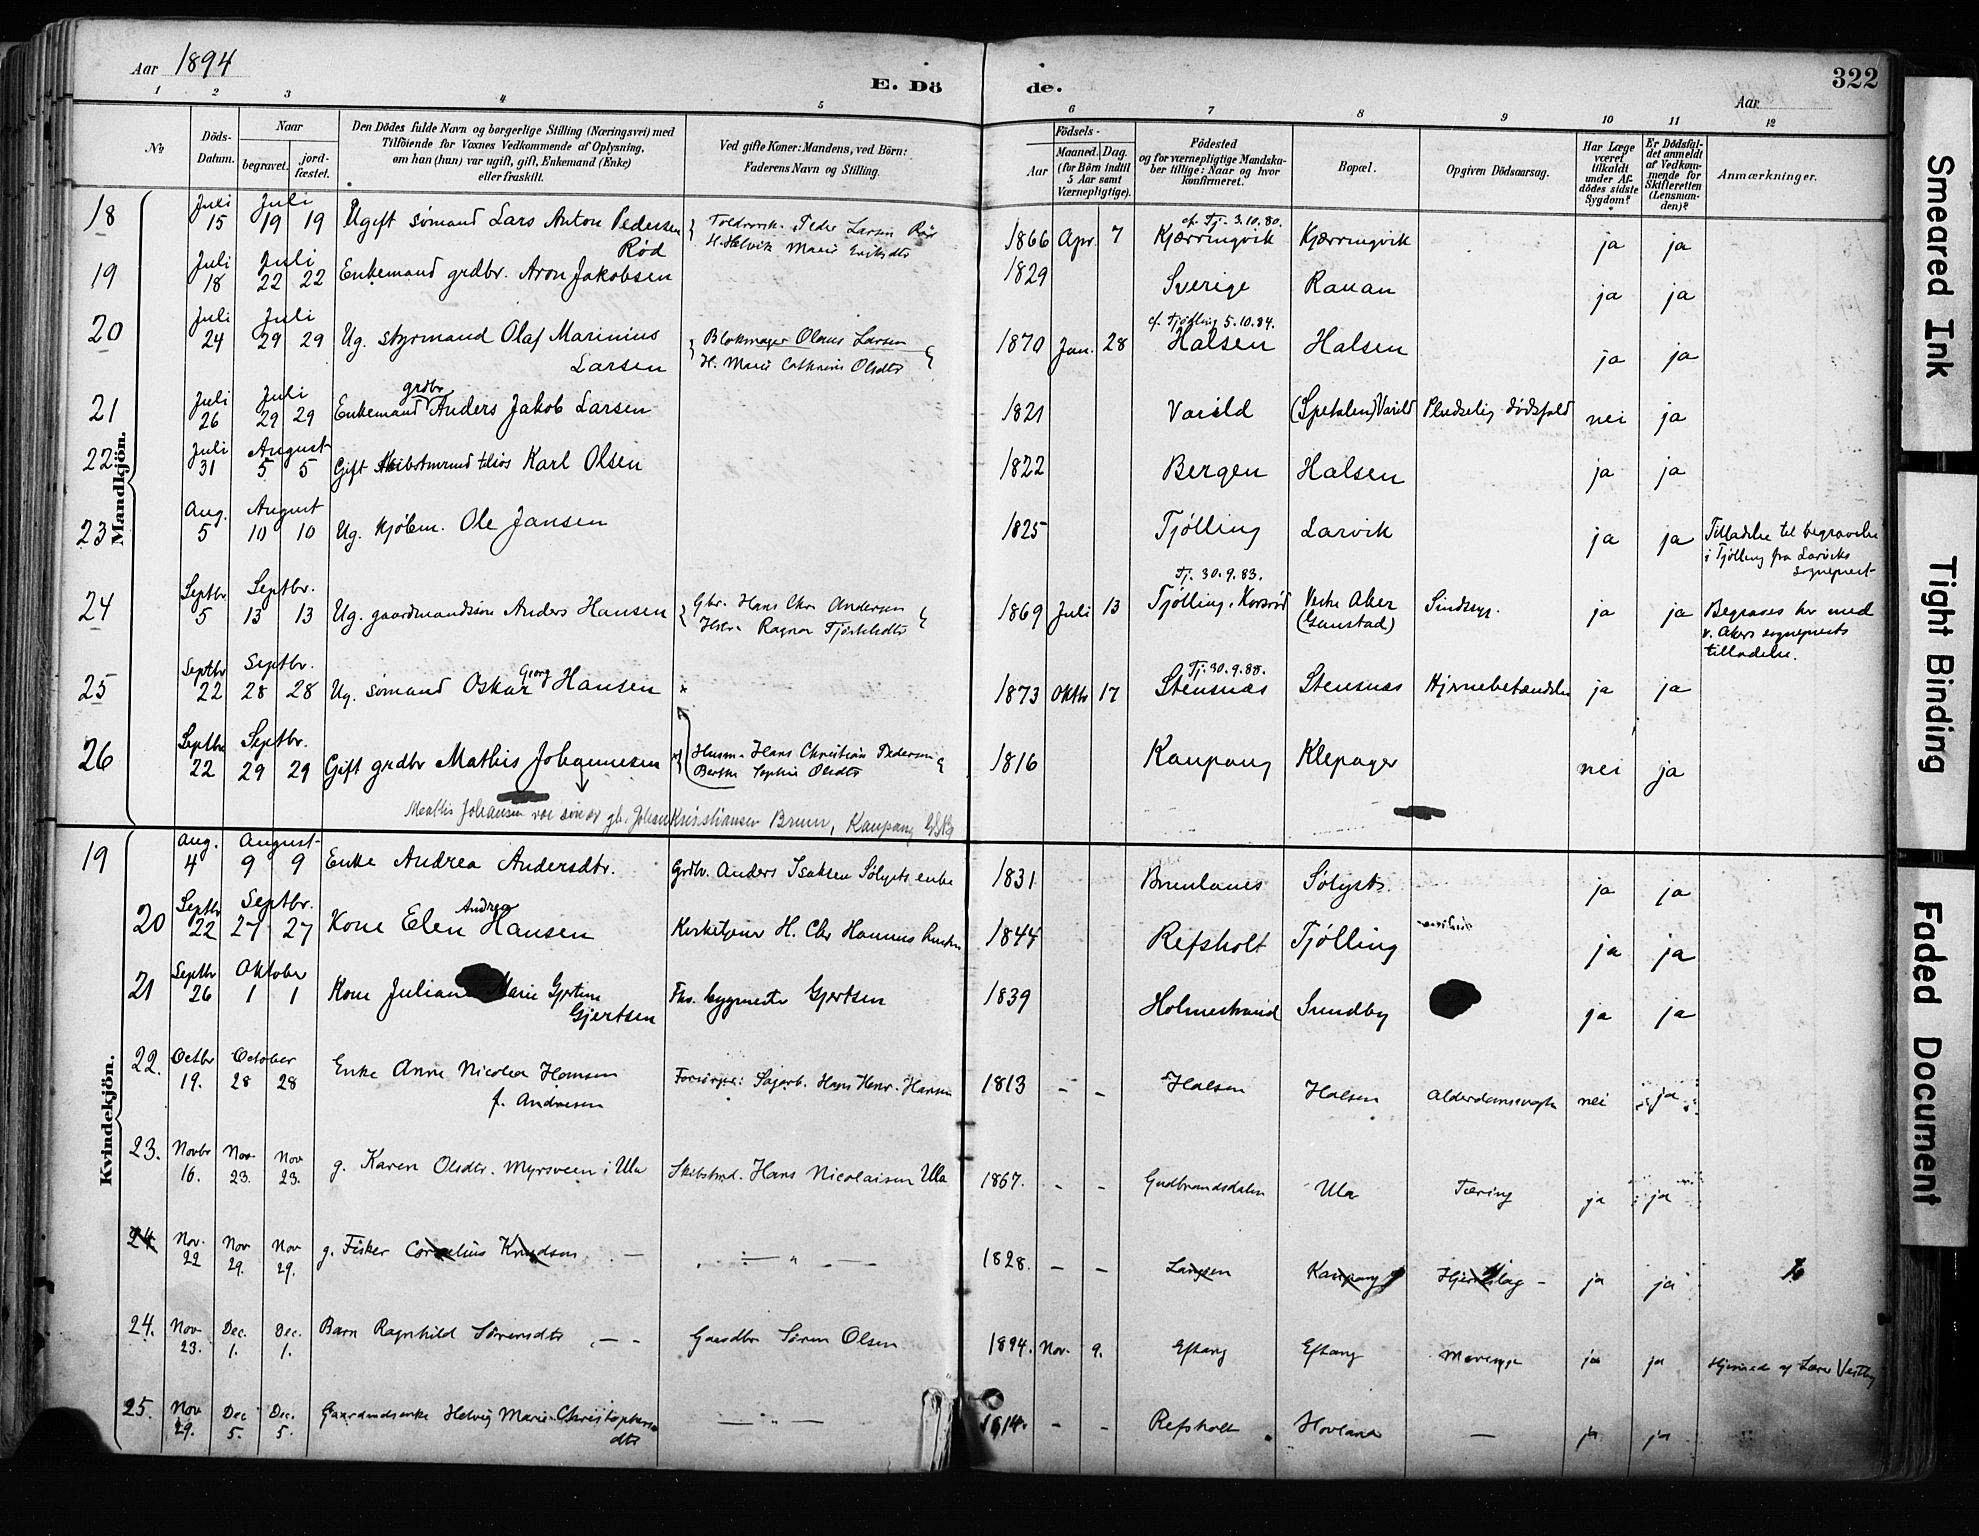 Aar 1894
E. Döde.
322
Aar
1 2 3 4 5 6 7 8 9 10 11 12
No
Döds-Datum.
Naar
begravet.
jord-fæstet.
Den Dödes fulde Navn og borgerlige Stilling (Næringsvei) med
Tilföiende for Voxnes Vedkommende af Oplysning,
om han (hun) var ugift, gift, Enkemand (Enke)
eller fraskilt.
Ved gifte Koner: Mandens, ved Börn:
Faderens Navn og Stilling.
Födsels-
Aar
Maaned. Dag.
(for Börn indtil
5 Aar samt
Værnepligtige).
Födested
og for værnepligtige Mandska-
ber tillige: Naar og hvor
konfirmeret.
Bopæl.
Opgiven Dödsaarsag.
Har Læge
været
tilkaldt
under Af-
dödes sidste
Sygdom?
Er Dödsfal-
det anmeldt
af Vedkom-
mende for
Skifteretten
(Lensman-
den)?
Anmærkninger.
Mandkjön.
18 Juli 15 Juli 19 19 Ugift sømand Lars Anton Pedersen Rød Peder Larsen Marie 1866 Apr. 7 cf. Tj. 3.10.80. Kjærringvik Kjærringvik ja ja
19 Juli 18 Juli 22 22 Enkemand grdbr. Aron Jakobsen 1829 Sverige Rauan ja ja
20 Juli 24 Juli 29 29 Ug. styrmand Olaf Marinius Larsen Blokmager Olaus Larsen H. Marie Cathrine Olsdtr 1870 Jan. 28 cf. Tjølling 5.10.84. Halsen Halsen ja ja
21 Juli 26 Juli 29 29 Enkemand grdbr Anders Jakob Larsen 1821 Varild (Spetalen) Varild Pludselig dødsfald nei ja
22 Juli 31 August 5 5 Gift Karl Olsen 1822 Bergen Halsen ja ja
23 Aug. 5 August 10 10 Ug. kjøbm. Ole Jansen 1825 Tjølling Larvik ja ja Tilladelse til begravelse
i Tjølling fra Larviks
sogneprest
24 Septbr. 5 Septbr. 13 13 Ug. gaardmandssøn Anders Hansen Gbr. Hans Chr. Andersen Ragna 1869 Juli 13 Tj. 30.9.83. Tjølling, Korsrød Vestre Aker (Gaustad) Sindssyg. ja ja Begraves her med
v. Akers sogneprests
tilladelse.
25 Septbr 22 Septbr. 28 28 Ug. sømand Oskar Georg Hansen 1873 Oktbr 17 Tj. 30.9.88. Stensnæs Stensnæs Hjernebetændelse ja ja
26 Septbr 22 Septbr. 29 29 Gift grdbr Mathis Johannesen Husm. Hans Christian Pedersen Berthe Sophie Olsdtr 1816 Kaupang Klepager nei ja
Mathis Johansen var sønn av gb. Johan Kristiansen Brunn, Kaupang
Kvindekjön.
19 Aug. 4 August 9 9 Enke Andrea Andersdtr. Grdbr. Anders Isaksen Sølysts enke 1831 Brunlanes Sølyst ja ja
20 Septbr 22 Septbr. 27 27 Kone Elen Andrea Hansen Kirketjener H. Chr. Hansens hustru 1844 Refsholt Tjølling ja ja
21 Septbr 26 Oktober 1 1 Kone Julian Marie Gjertsen Gjertsen Fhv. bygmester Gjertsen 1839 Holmestrand Sundby ja ja
22. Octbr 19. October 28 28 Enke Anne Nicolea Hansen f. Andresen Forsørger: Sagarb. Hans Henr. Hansen 1813 - - Halsen Halsen Alderdomssvagh. nei ja
23. Novbr 16. Nov 23. Nov 23. g. Karen Olsdtr. Myrsveen i Ula Skibstmd. Hans Nicolaisen Ula 1867. - - Gudbrandsdalen Ula Tæring ja ja
24. Nov. 22 Nov 29. Nov 29. g. Fisker Cornelius Knudsen — — " — 1828. - - Langsen Kaupang Hjerteslag - ja ja
24. Nov 23. Dec. 1. Dec. 1. Barn Ragnhild Sørensdtr — Gaardbr Søren Olsen 1894. Nov. 9. Eftang Eftang ja ja Hjemmed. af Lærer Vestby
25. Nov 29. Dec 5. Dec. 5. Gaardmdsenke Helvig Marie Christophersdtr — " — 1814. - - Refsholt Hovland — ja ja
Smeared Ink
Tight Binding
Faded Document